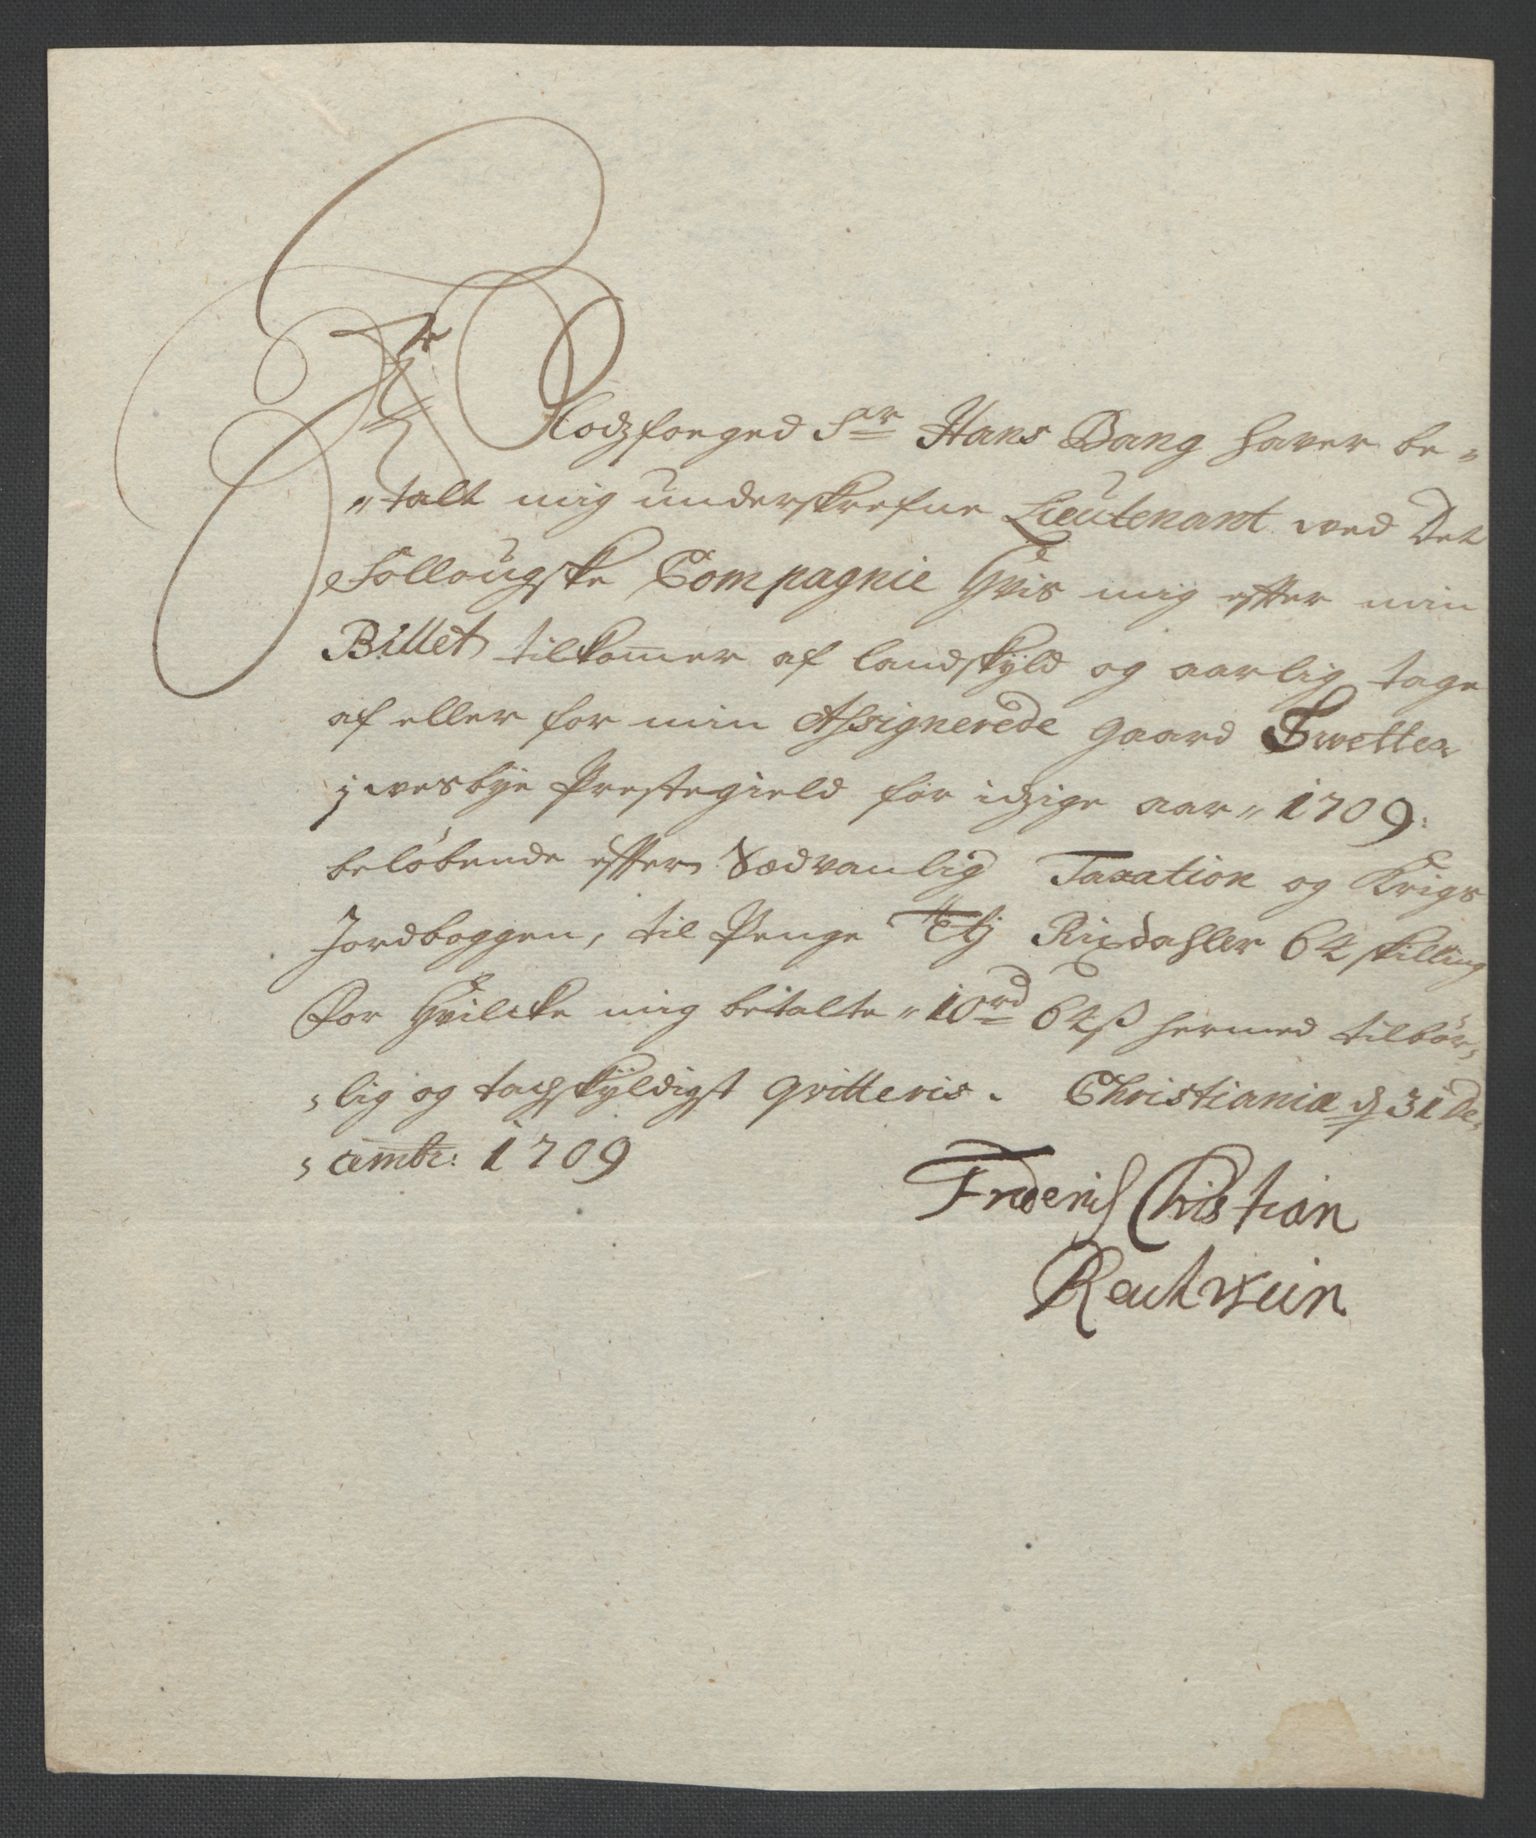 Kr Slodzfoeged Sr Hans Bang hafver be-
-talt mig underskrefne Lieutenant wed Det
Follougske Compagnie hvis mig efter min
Billet tilkommer af landskyld og aarlig tage
af eller for min Assignerede gaard Twetter
j wesbye Prestegield for idzige aar 1709:
beløbende efter Sædvanlig Taxation og Krigs
Jordboggen, til Penge Ti Rixdahler 64 skilling
For hvilcke mig betalte 10 rd 64 ß hermed tilbør-
-lig og tachskyldigst qvitteris. Christiania d 31 De-
-cembr: 1709
Frederich Christian
Rechwein